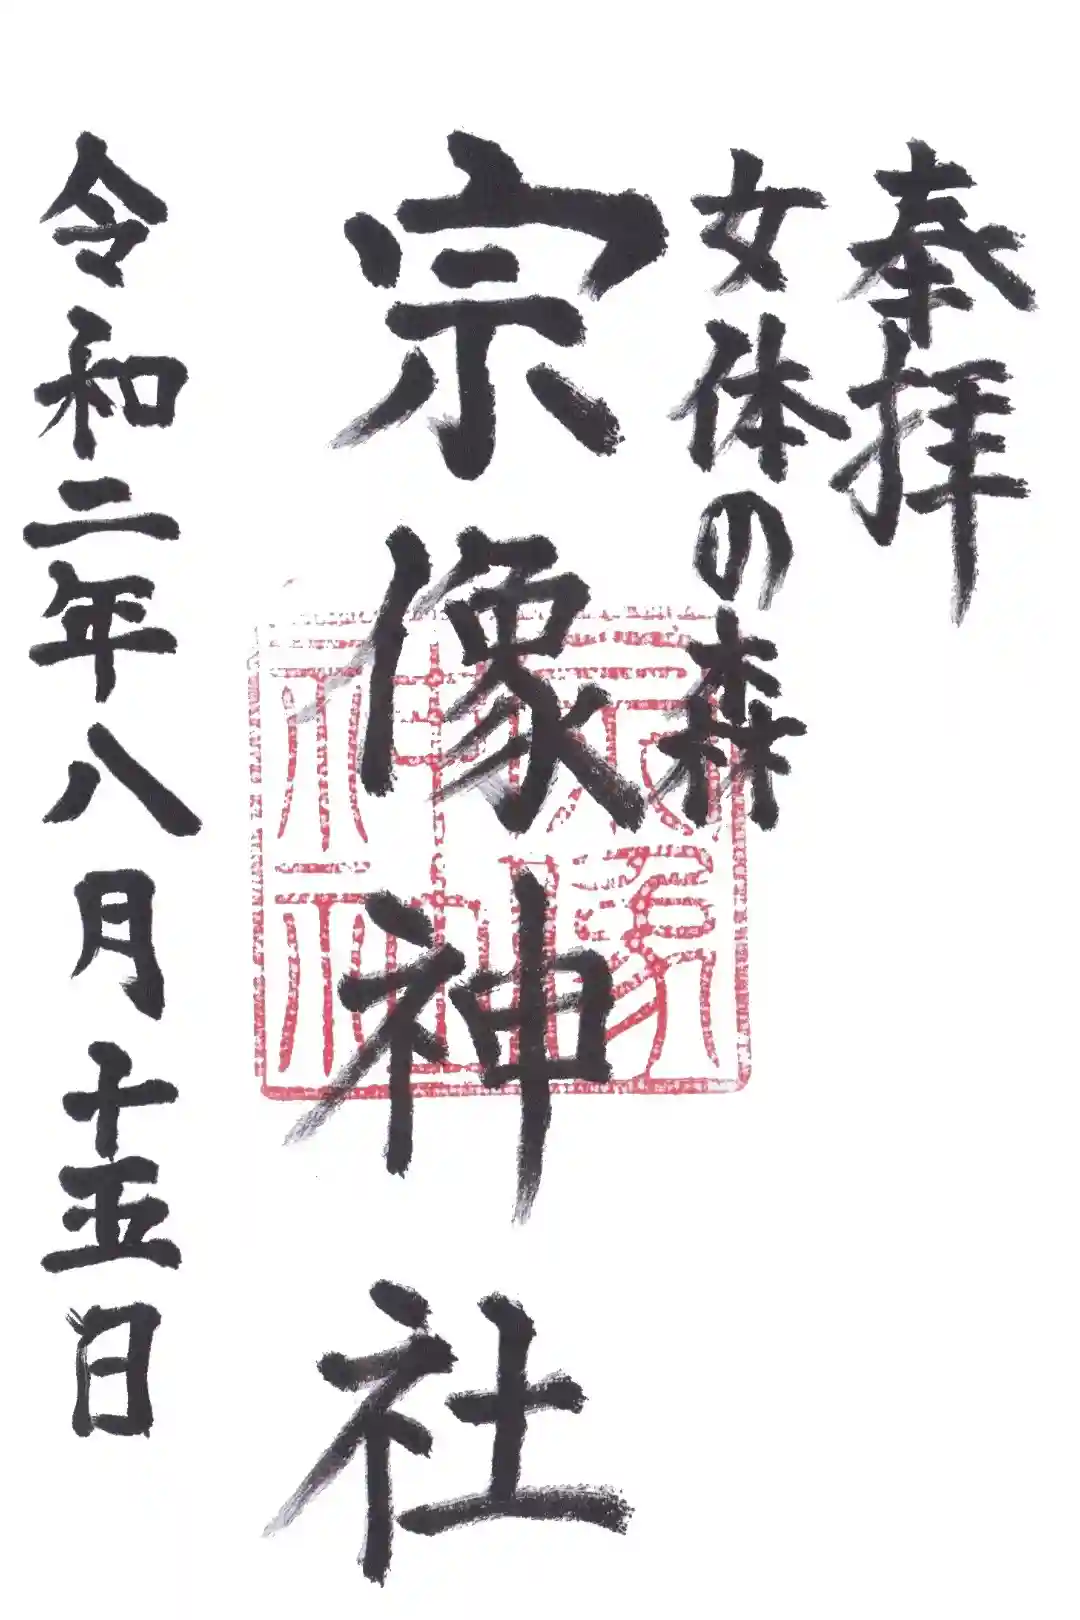 奉拝
女体の森
宗像神社
令和二年八月十五日
宗像神社